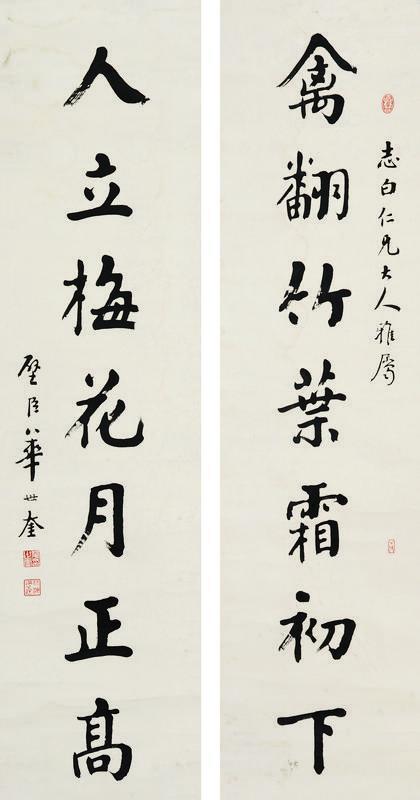 志白仁兄大人雅屬
禽翻竹葉霜初下
人立梅花月正高
璧臣華世奎